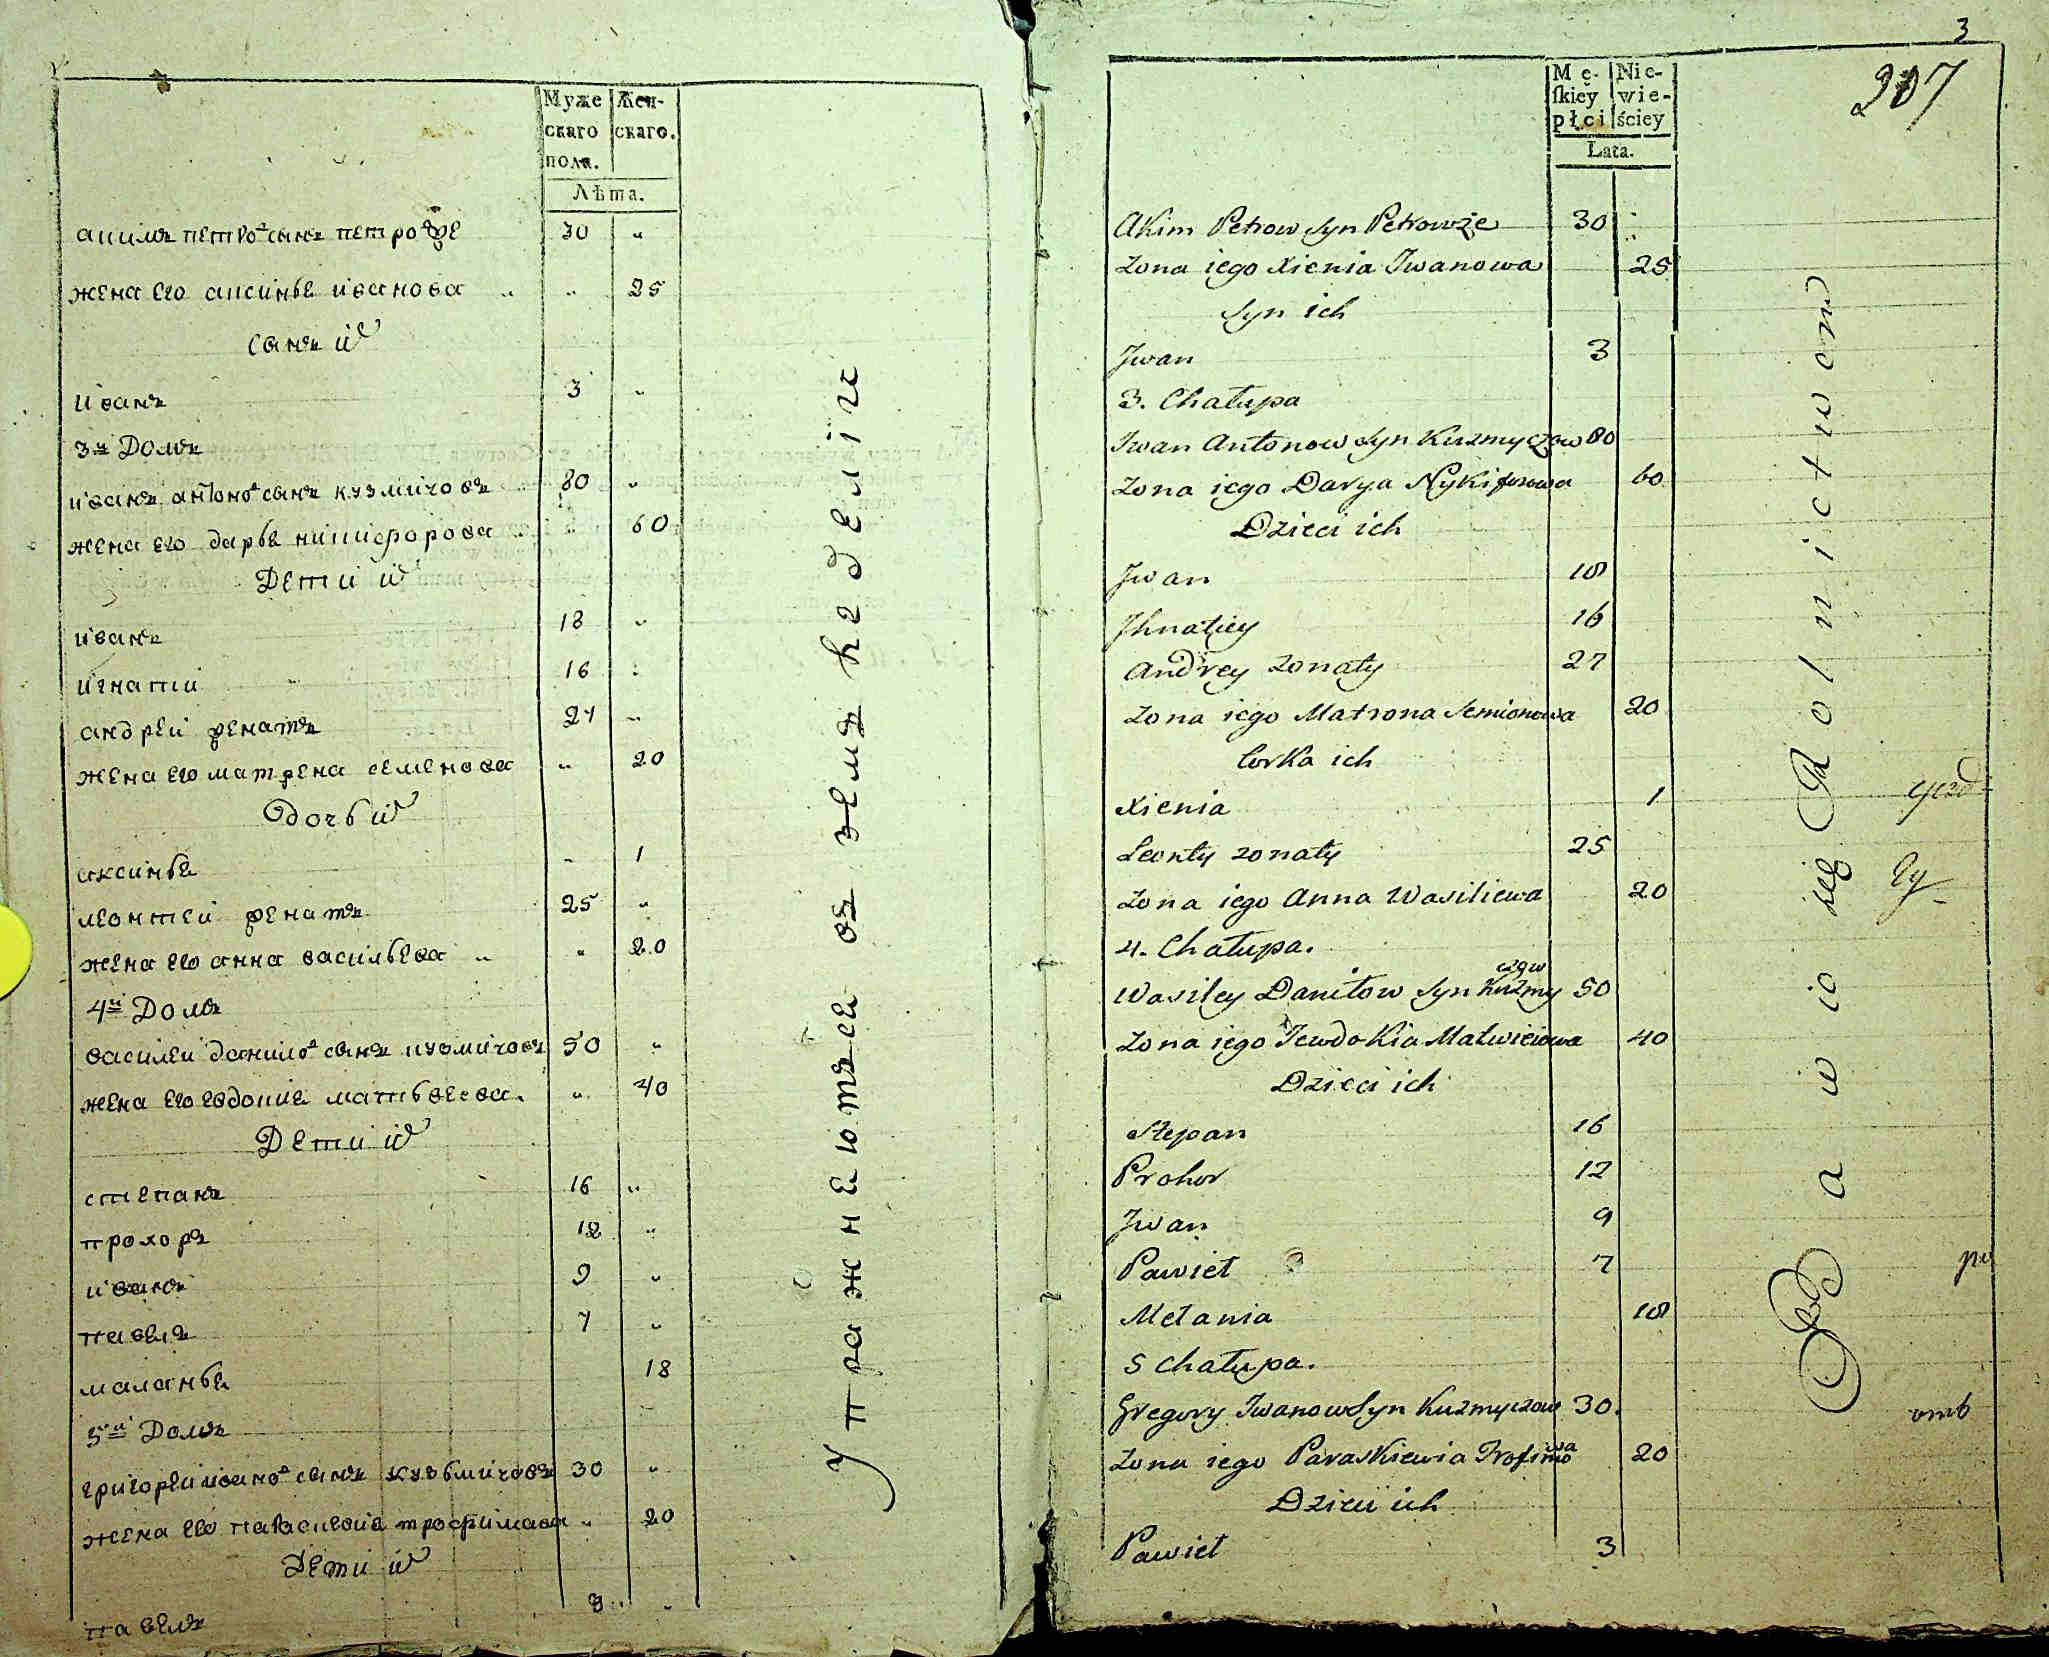 Муже
скаго
пола.
Жен-
скаго.
Лѣта.
акимъ петров сынъ петровже 30 "
жена его аксинья иванова " " 25
сынъ их
иванъ 3 "
3й Домъ
иванъ антонов сынъ кузмичовъ 80 "
жена его дарья никифорова " 60
Дети их
иванъ 18 "
игнатий 16 "
андреи женатъ 27 "
жена его матрена семенова " 20
дочь их
аксинья " 1
леонтеи женатъ 25 "
жена его анна васильева " " 20
4й Домъ
василеи данилов сынъ кузмичовъ 50 "
жена его евдокия матвьеева " 40
Дети их
степанъ 16 "
прохоръ 12 "
иванъ 9 "
павелъ 7 "
маланья 18
5й Домъ
григореи иванов сынъ кузьмичовъ 30 "
жена его параскевия трофимава " 20
Дети их
павелъ 3 "
Упражнеютъся въ земле
3
207
Mę-
ſkiey
płci
Nie-
wie-
ściey
Lata.
Akim Petrow Syn Petrowże 30 "
Zona iego Xienia Jwanowa 25
Syn ich
Jwan 3
3. Chałupa
Jwan Antonow Syn Kuzmyczow 80
Zona iego Darya Nykiforowa 60
Dzieci ich
Jwan 18
Jhnaticy 16
Andrey zonaty 27
Zona iego Matrona Semionowa 20
Corka ich
Xienia 1
Leonty zonaty 25
Zona iego Anna Wasiliewa 20
4. Chałupa.
Wasiley Daniłow Syn Kuzmyczow 50
Zona iego Jewdokia Matwieiowa 40
Dzieci ich
Stepan 16
Prohor 12
Jwan 9
Pawieł 7
Mełania 18
5 Chałupa.
Gregory Jwanow Syn Kuzmyczow 30.
Zona iego Paraskiewia Trofimowa 20
Dzieci ich
Pawieł 3
Bawio się Rolnictwom